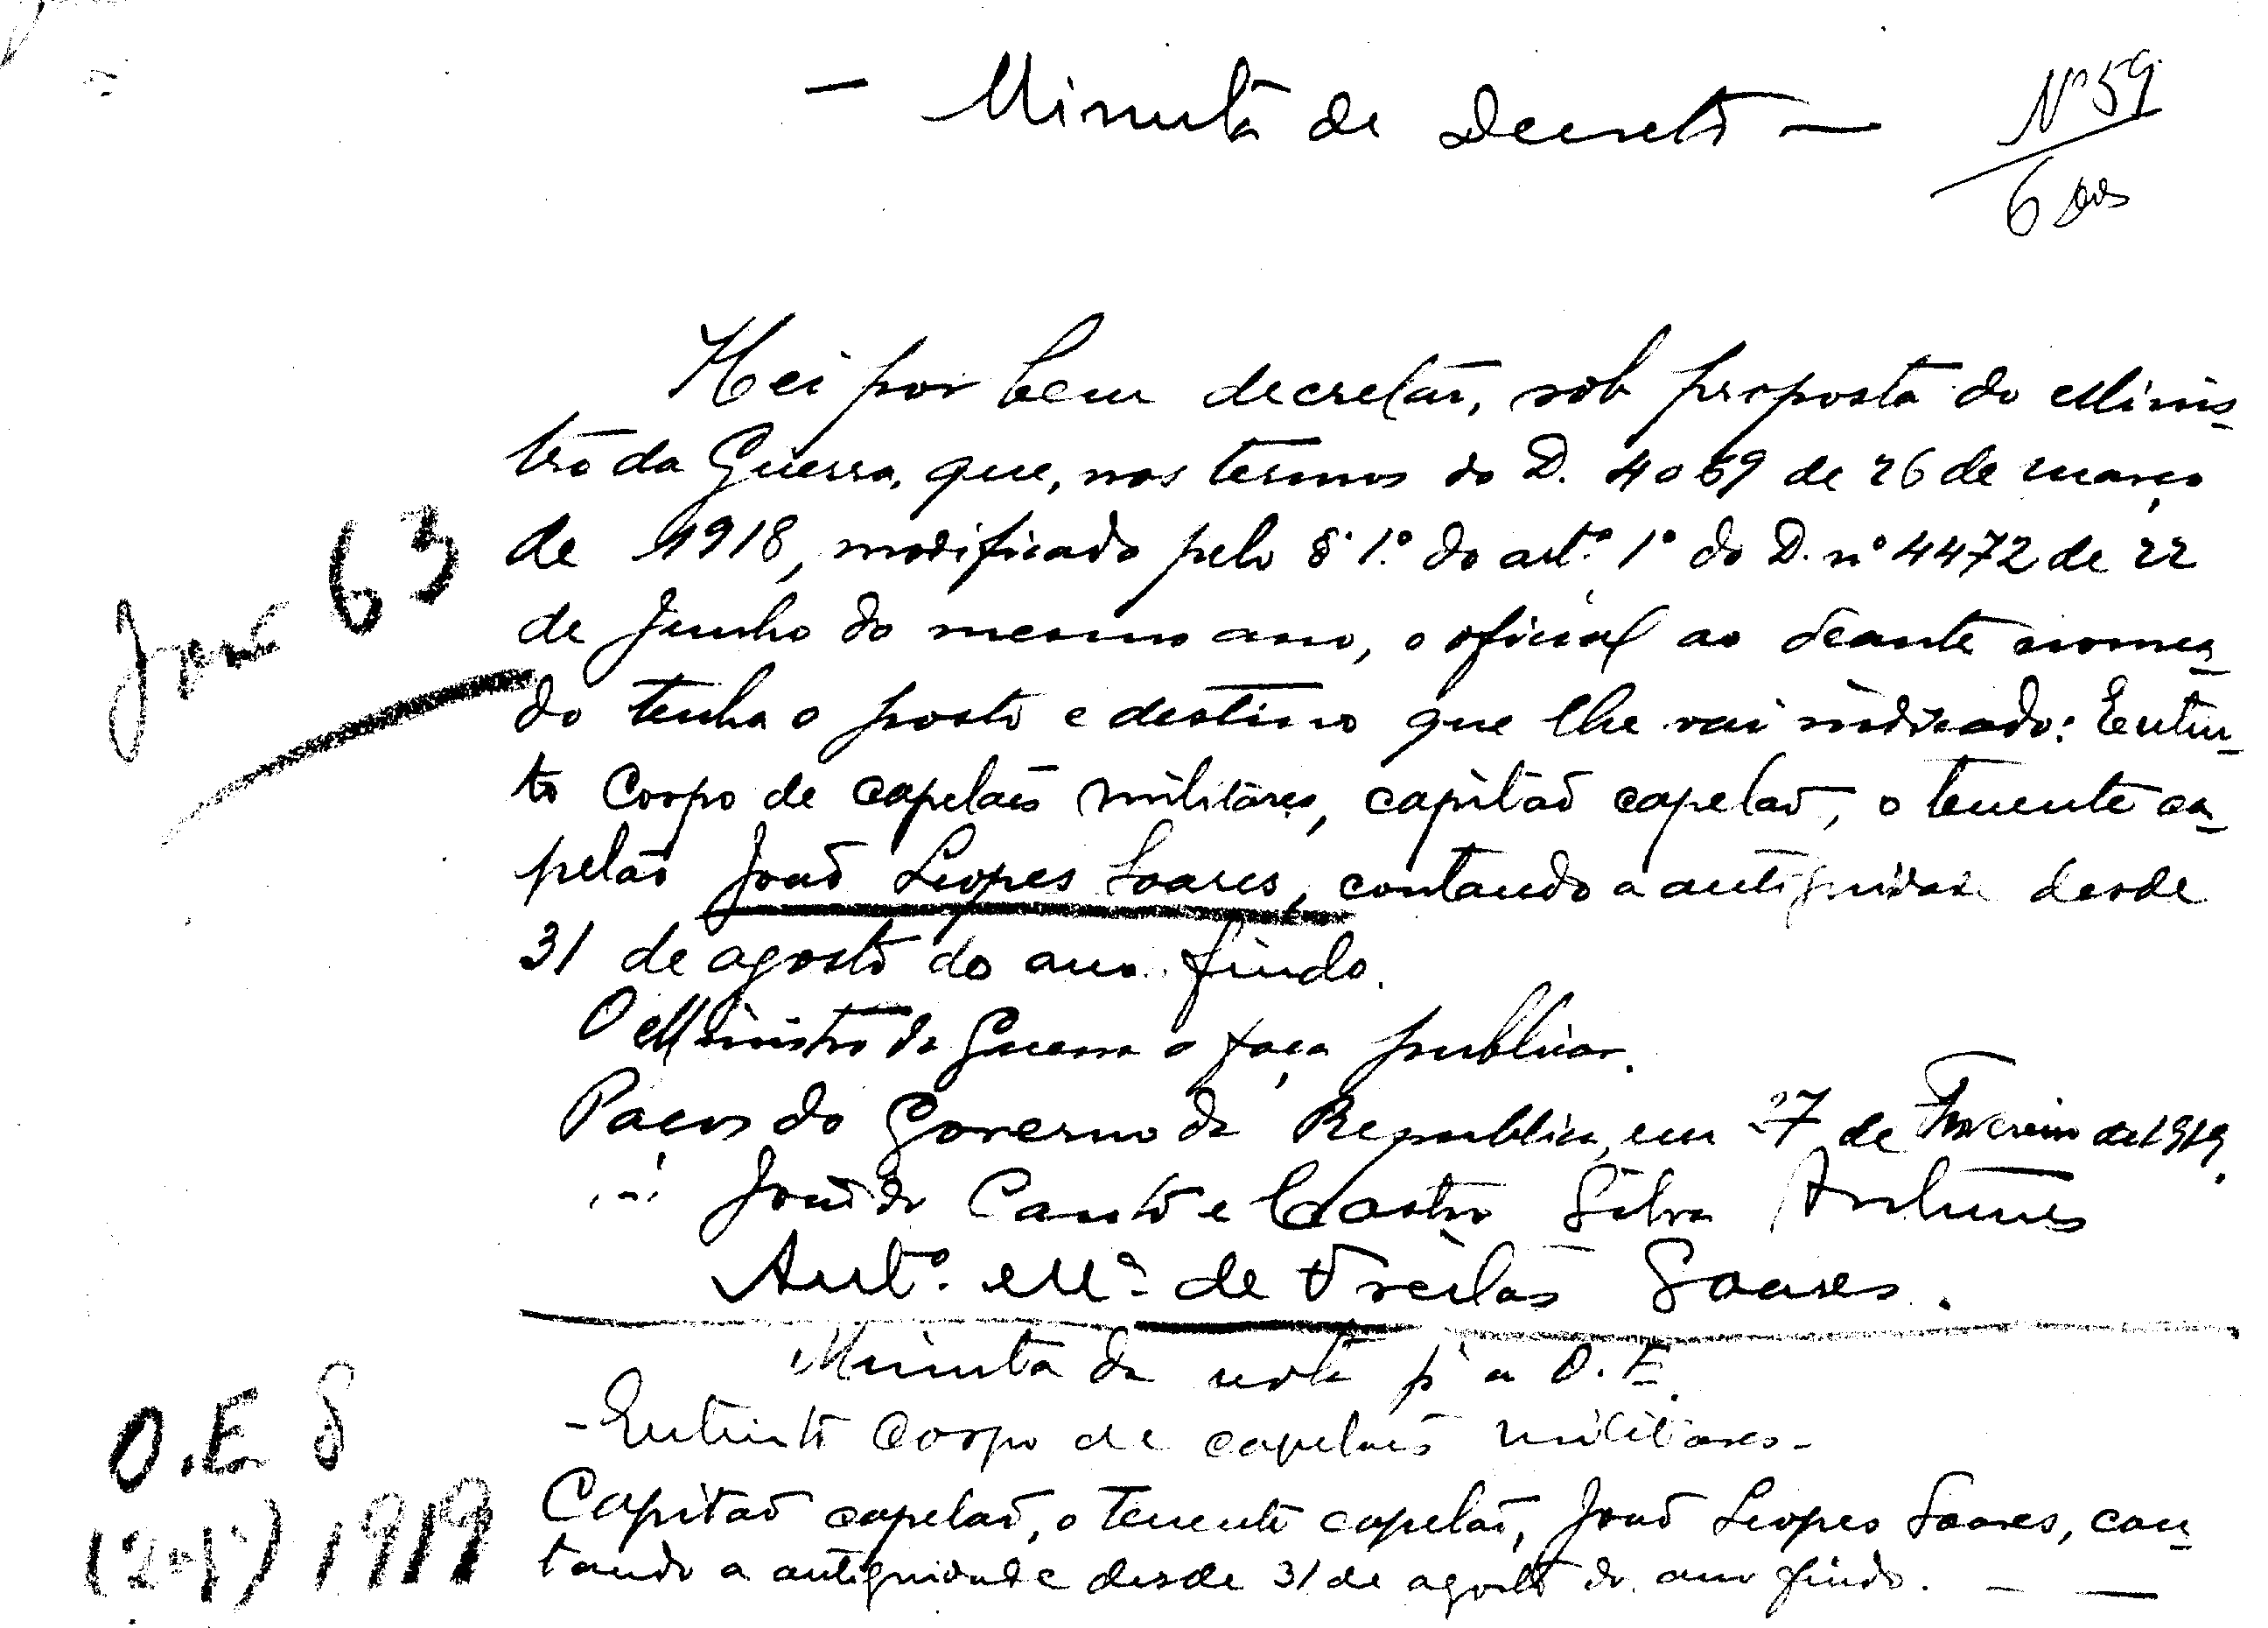 — Minuta de Decreto —
Nº 59
6
Hei por bem decretar, sob proposta do Minis-
tro da Guerra, que, nos termos do D. 4069 de 26 de março
de 1918, modificado pelo § 1.º do art.º 1º do D. nº 4472 de 22
de Junho do mesmo ano, o oficial ao deante nomea-
do tenha o posto e destino que lhe vai indicado: Extin-
to Corpo de capelães militares, capitão capelão, o tenente ca-
pelão João Lopes Soares, contando a antiguidade desde
31 de agosto do ano findo.
O Ministro da Guerra o faça publicar.
Paços do Governo da Republica, em 27 de Fevereiro de 1919.
João do Canto e Castro Silva Antunes
Antº. Mª. de Freitas Soares.
63
Minuta da nota pª a O.E.
- Extinto Corpo de capelães militares -
Capitão capelão, o tenente capelão, João Lopes Soares, con-
tando a antiguidade desde 31 de agosto do ano findo. — —
O.E. 8
1919